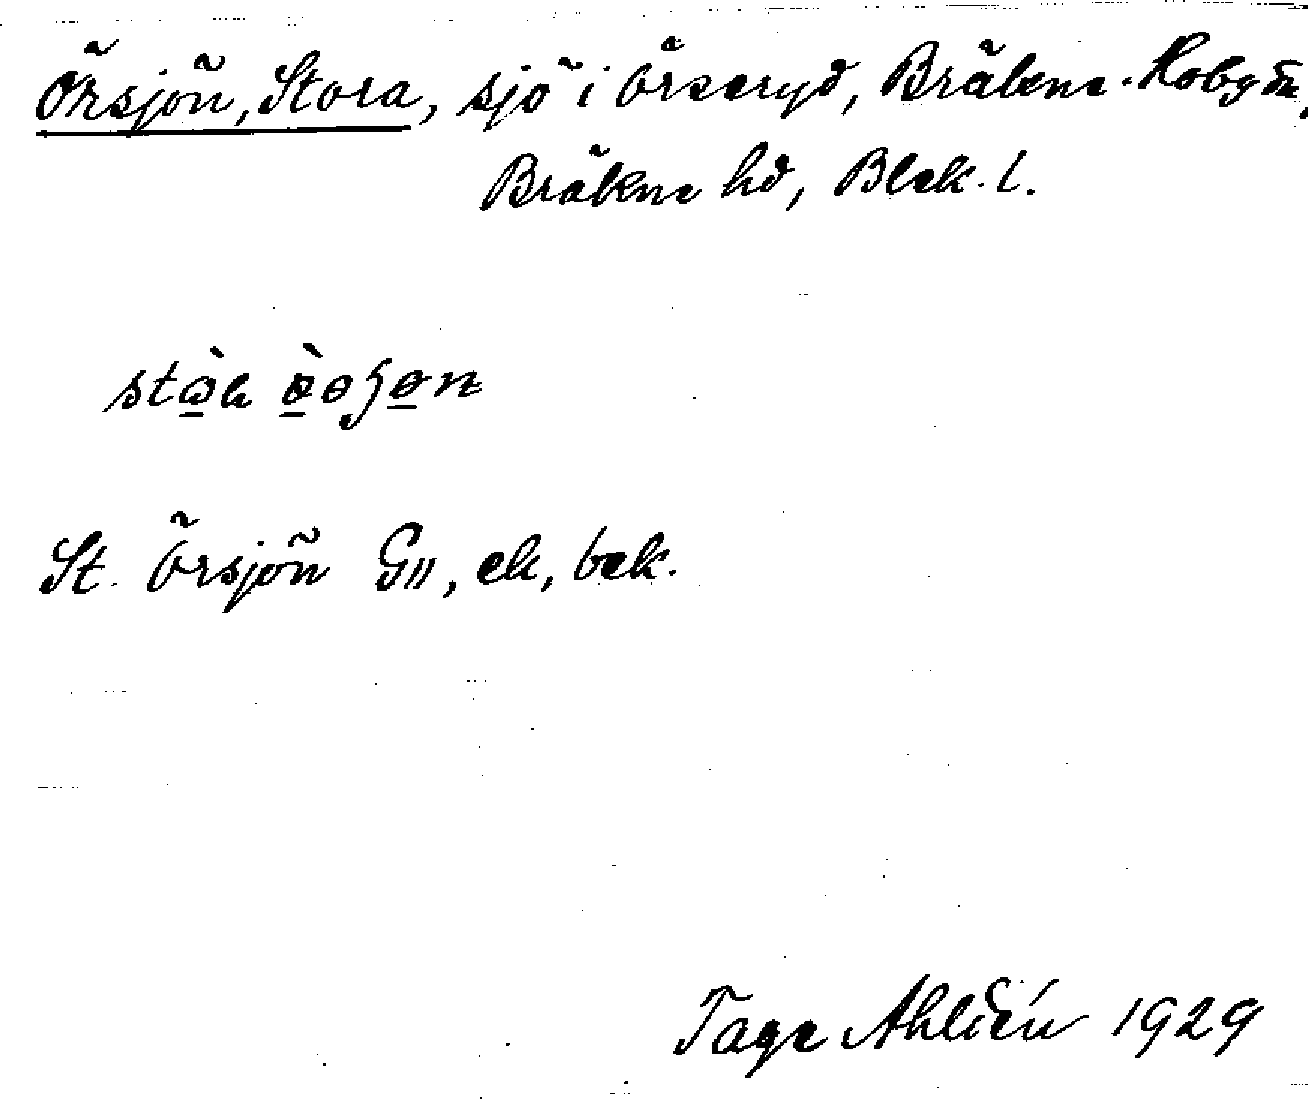 Örsjön, Stora, sjö i Örseryd, Bräkne-Hoby sn,
Bräkne hd, Blek. l.
St. Örsjön G11, ek, bek.
Tage Ahldén 1929